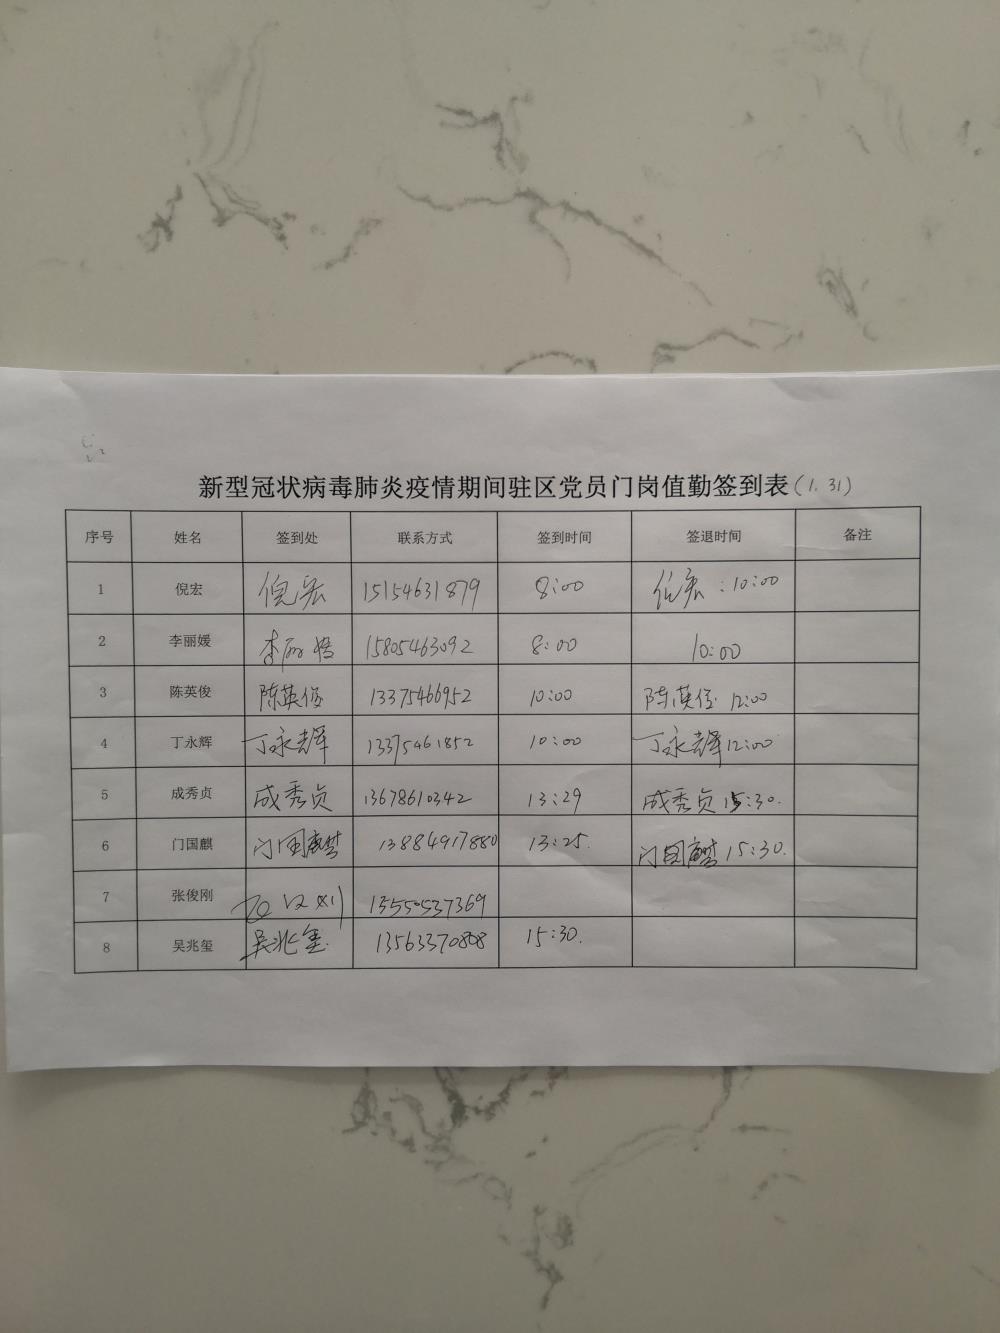 新型冠状病毒肺炎疫情期间驻区党员门岗值勤签到表(1.31)
序号 姓名 签到处 联系方式 签到时间 签退时间 备注
1 倪宏 倪宏 15154631879 8:00 倪宏:10:00
2 李丽媛 李丽媛 15805463092 8:00 10:00
3 陈英俊 陈英俊 13375466952 10:00 陈英俊 12:00
4 丁永辉 丁永辉 13375461852 10:00 丁永辉12:00
5 成秀贞 成秀贞 13678610342 13:29 成秀贞 15:30.
6 门国麒 门国麒 13884917880 13:25. 门国麒 15:30.
7 张俊刚 13550537369
8 吴兆玺 吴兆玺 13563370808 15:30.